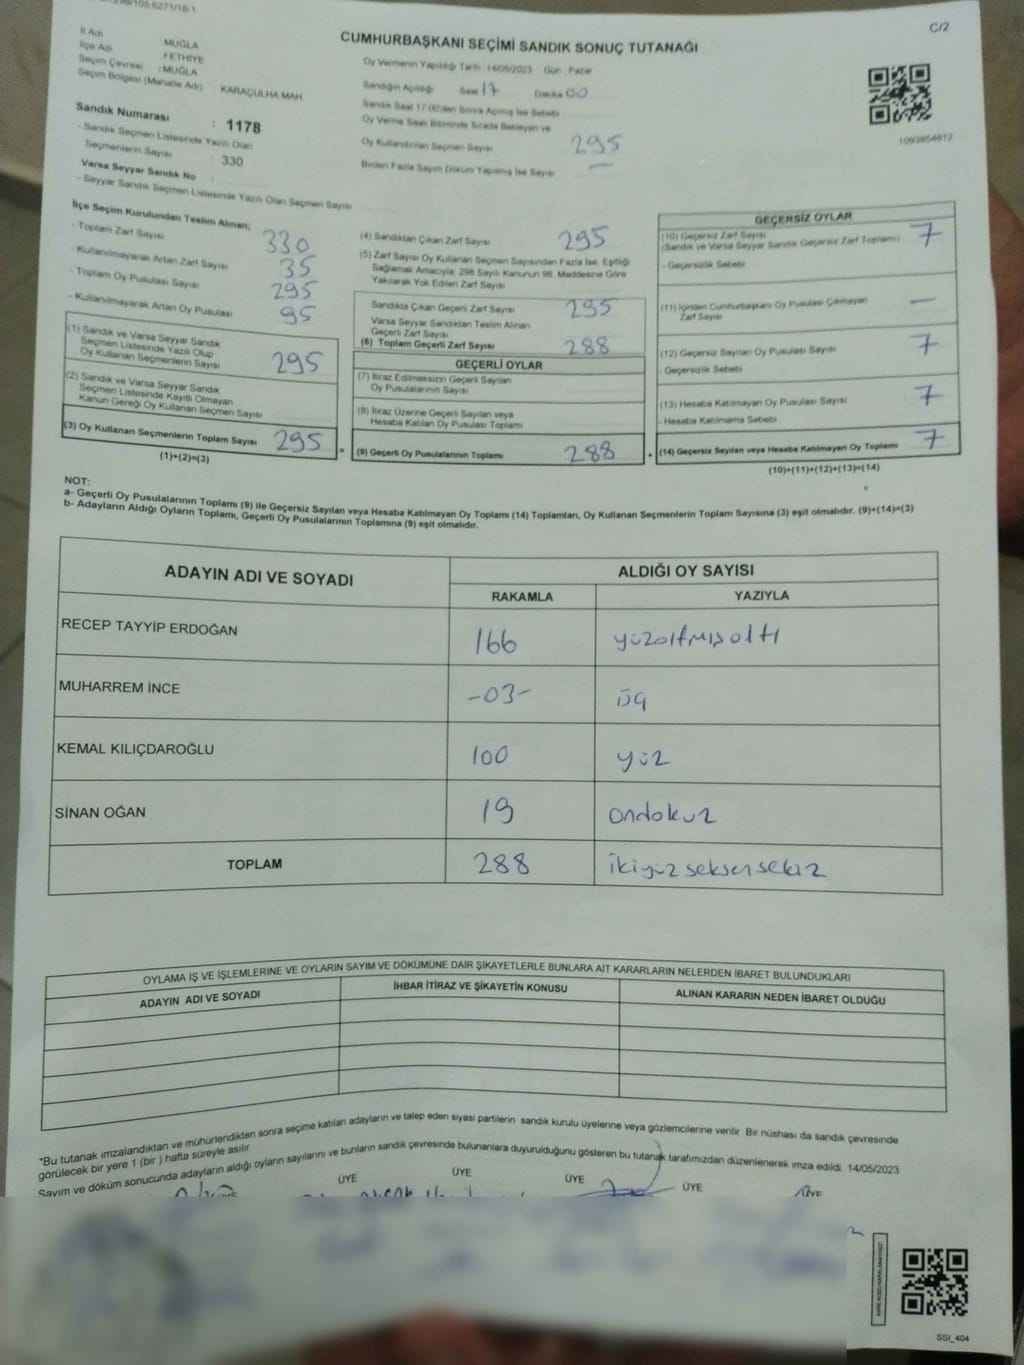 C/2
CUMHURBAŞKANI SEÇİMİ SANDIK SONUÇ TUTANAĞI
İl Adı MUĞLA
İlçe Adı FETHİYE
Seçim Çevresi : MUĞLA
Seçim Bölgesi (Mahalle Adı) : KARAÇULHA MAH
Sandık Numarası : 1178
- Sandık Seçmen Listesinde Yazılı Olan
Seçmenlerin Sayısı : 330
Varsa Seyyar Sandık No
- Seyyar Sandık Seçmen Listesinde Yazılı Olan Seçmen Sayısı
Oy Vermenin Yapıldığı Tarih : 14/05/2023 Gün : Pazar
Sandığın Açıldığı Saat 17 Dakika 00
Sandık Saat 17:00'den Sonra Açılmış İse Sebebi
Oy Verme Saati Bitiminde Sırada Bekleyen ve
Oy Kullandırılan Seçmen Sayısı 295
Birden Fazla Sayım Döküm Yapılmış İse Sayısı —
1093854612
İlçe Seçim Kurulundan Teslim Alınan;
- Toplam Zarf Sayısı 330
- Kullanılmayarak Artan Zarf Sayısı 35
- Toplam Oy Pusulası Sayısı 295
- Kullanılmayarak Artan Oy Pusulası 95
(1) Sandık ve Varsa Seyyar Sandık
Seçmen Listesinde Yazılı Olup
Oy Kullanan Seçmenlerin Sayısı 295
(2) Sandık ve Varsa Seyyar Sandık
Seçmen Listesinde Kayıtlı Olmayan
Kanun Gereği Oy Kullanan Seçmen Sayısı
(3) Oy Kullanan Seçmenlerin Toplam Sayısı 295
(1)+(2)=(3)
(4) Sandıktan Çıkan Zarf Sayısı 295
(5) Zarf Sayısı Oy Kullanan Seçmen Sayısından Fazla İse, Eşitliği
Sağlamak Amacıyla, 298 Sayılı Kanunun 98. Maddesine Göre
Yakılarak Yok Edilen Zarf Sayısı
Sandıkta Çıkan Geçerli Zarf Sayısı 295
Varsa Seyyar Sandıktan Teslim Alınan
Geçerli Zarf Sayısı
(6) Toplam Geçerli Zarf Sayısı 288
GEÇERLİ OYLAR
(7) İtiraz Edilmeksizin Geçerli Sayılan
Oy Pusulalarının Sayısı
(8) İtiraz Üzerine Geçerli Sayılan veya
Hesaba Katılan Oy Pusulası Toplamı
= (9) Geçerli Oy Pusulalarının Toplamı 288 +
GEÇERSİZ OYLAR
(10) Geçersiz Zarf Sayısı 7
(Sandık ve Varsa Seyyar Sandık Geçersiz Zarf Toplamı)
- Geçersizlik Sebebi
(11) İçinden Cumhurbaşkanı Oy Pusulası Çıkmayan —
Zarf Sayısı
(12) Geçersiz Sayılan Oy Pusulası Sayısı 7
- Geçersizlik Sebebi
(13) Hesaba Katılmayan Oy Pusulası Sayısı 7
- Hesaba Katılmama Sebebi
(14) Geçersiz Sayılan veya Hesaba Katılmayan Oy Toplamı 7
(10)+(11)+(12)+(13)=(14)
NOT:
a- Geçerli Oy Pusulalarının Toplamı (9) ile Geçersiz Sayılan veya Hesaba Katılmayan Oy Toplamı (14) Toplamları, Oy Kullanan Seçmenlerin Toplam Sayısına (3) eşit olmalıdır. (9)+(14)=(3)
b- Adayların Aldığı Oyların Toplamı, Geçerli Oy Pusulalarının Toplamına (9) eşit olmalıdır.
ADAYIN ADI VE SOYADI ALDIĞI OY SAYISI
RAKAMLA YAZIYLA
RECEP TAYYİP ERDOĞAN 166 yüzaltmışaltı
MUHARREM İNCE -03- üç
KEMAL KILIÇDAROĞLU 100 yüz
SİNAN OĞAN 19 ondokuz
TOPLAM 288 ikiyüz seksen sekiz
OYLAMA İŞ VE İŞLEMLERİNE VE OYLARIN SAYIM VE DÖKÜMÜNE DAİR ŞİKAYETLERLE BUNLARA AİT KARARLARIN NELERDEN İBARET BULUNDUKLARI
ADAYIN ADI VE SOYADI İHBAR İTİRAZ VE ŞİKAYETİN KONUSU ALINAN KARARIN NEDEN İBARET OLDUĞU
*Bu tutanak imzalandıktan ve mühürlendikten sonra seçime katılan adayların ve talep eden siyasi partilerin sandık kurulu üyelerine veya gözlemcilerine verilir. Bir nüshası da sandık çevresinde
görülecek bir yere 1 (bir ) hafta süreyle asılır
Sayım ve döküm sonucunda adayların aldığı oyların sayılarını ve bunların sandık çevresinde bulunanlara duyurulduğunu gösteren bu tutanak tarafımızdan düzenlenerek imza edildi. 14/05/2023
ÜYE ÜYE ÜYE ÜYE ÜYE
SSI_404